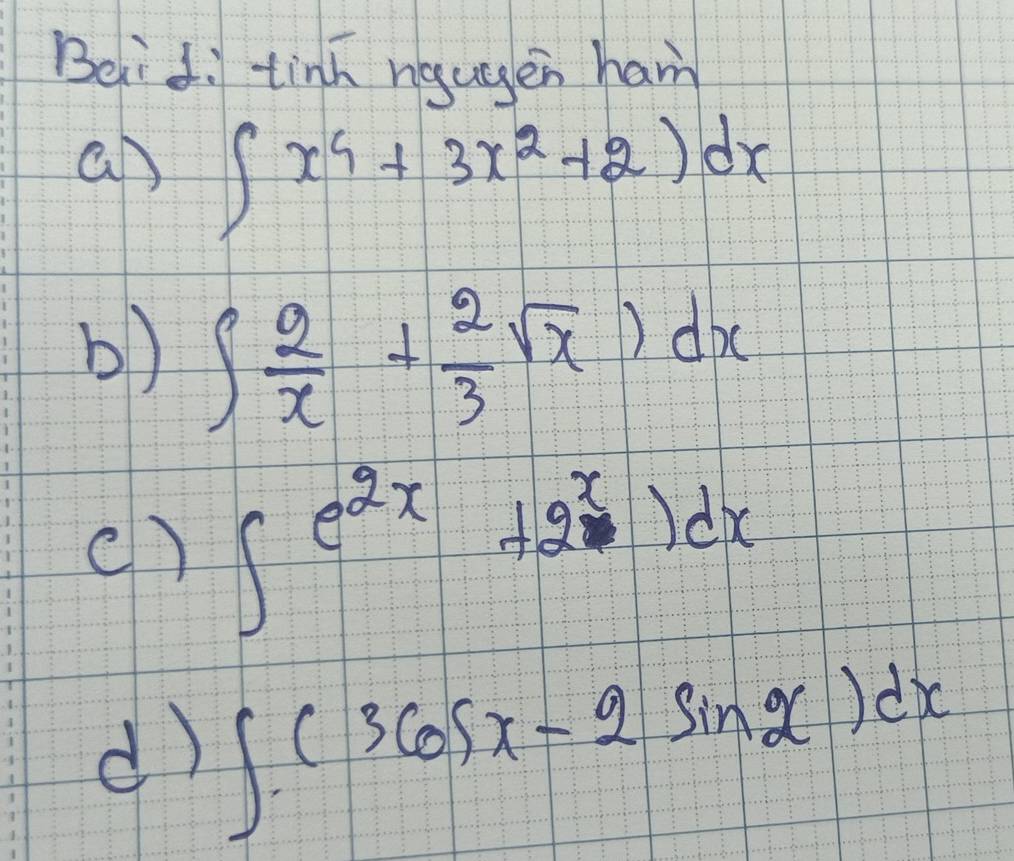 Bài 1: tính nguyên hàm
a) ∫ x⁴ + 3x² + 2 ) dx
b) ∫ 2/x + 2/3 √x ) dx
c) ∫ e^2x + 2^x ) dx
d) ∫ ( 3 cos x - 2 sin x ) dx